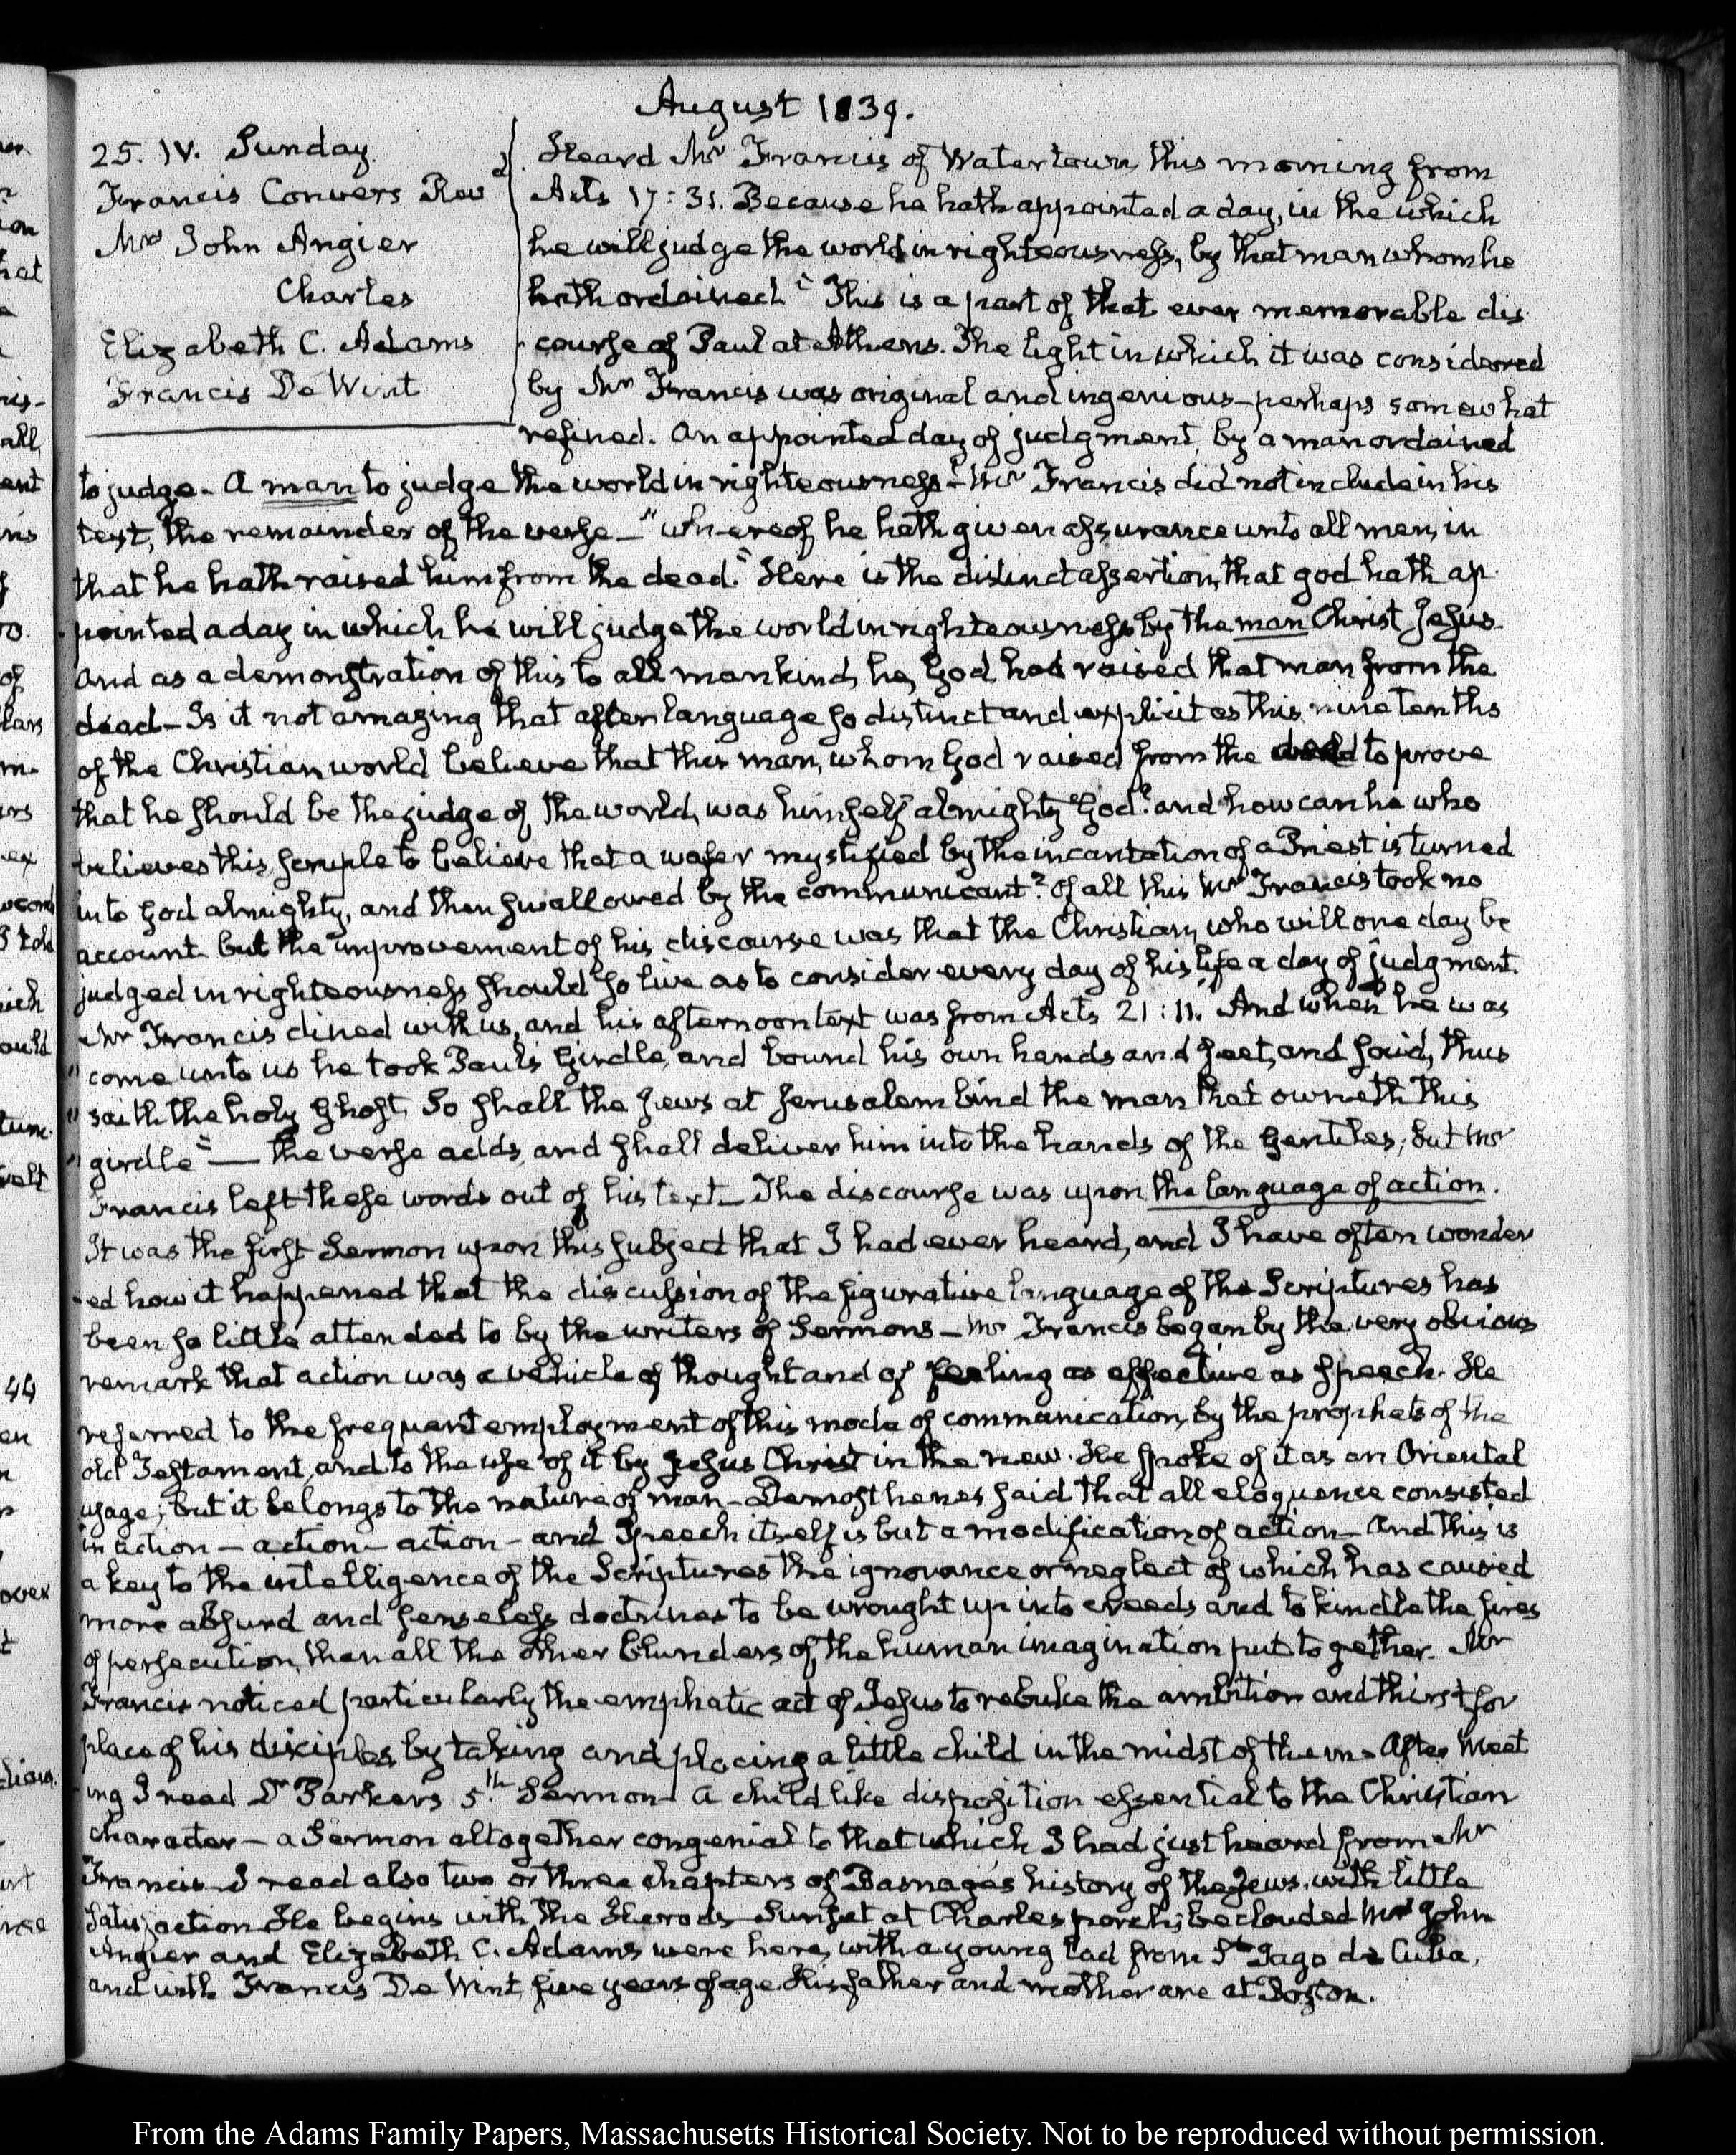 August 1839.
25. IV. Sunday
Francis Convers Revd
Mrs John Angier
Charles
Elizabeth C. Adams
Francis De Wint
Heard Mr Francis of Watertown, this morning from
Acts 17:31. Because he hath appointed a day, in the which
he will judge the world in righteousness, by that man whom he
hath ordained" This is a part of that ever memorable dis
course of Paul at Athens. The light in which it was considered
by Mr Francis was original and ingenious—perhaps somewhat
refined. An appointed day of judgment, by a man ordained
to judge—A man to judge the world in righteousness—Mr Francis did not include in his
text, the remainder of the verse—"whereof he hath given assurance unto all men, in
that he hath raised him from the dead." Here is the distinct assertion, that god hath ap
pointed a day in which he will judge the world in righteousness by the man Christ Jesus.
And as a demonstration of this to all mankind, he, God, has raised that man from the
dead—Is it not amazing that after language so distinct and explicit as this, nine tenths
of the Christian world believe that this man, whom God raised from the dead to prove
that he should be the judge of the world, was himself almighty God? and how can he who
believes this, scruple to believe that a wafer mystified by the incantation of a Priest is turned
into God almighty, and then swallowed by the communicant? Of all this Mr Francis took no
account but the improvement of his discourse was that the Christian, who will one day be
judged in righteousness should so live as to consider every day of his life a day of judgment.
Mr Francis dined with us, and his afternoon text was from Acts 21:11. And when he was
"come unto us he took Paul's Girdle, and bound his own hands and feet, and said, thus
"saith the holy Ghost, So shall the Jews at Jerusalem bind the man that owneth this
"girdle"—the verse adds, and shall deliver him into the hands of the Gentiles; but Mr
Francis left these words out of his text—The discourse was upon the language of action.
It was the first Sermon upon this subject that I had ever heard, and I have often wonder
-ed how it happened that the discussion of the figurative language of the Scriptures has
been so little attended to by the writers of Sermons—Mr Francis began by the very obvious
remark that action was a vehicle of thought and of feeling as effective as speech. He
referred to the frequent employment of this mode of communication, by the prophets of the
old Testament, and to the use of it by Jesus Christ in the new. He spoke of it as an Oriental
usage; but it belongs to the nature of man—Demosthenes said that all eloquence consisted
in action—action—action—and Speech itself is but a modification of action—And this is
a key to the intelligence of the Scriptures the ignorance or neglect of which has caused
more absurd and senseless doctrines to be wrought up into creeds and to kindle the fires
of persecution, than all the other blunders of the human imagination put together. Mr
Francis noticed particularly the emphatic act of Jesus to rebuke the ambition and thirst for
place of his disciples by taking and placing a little child in the midst of them—After meet
ing I read Dr Parkers 5th Sermon—A childlike disposition essential to the Christian
character—a Sermon altogether congenial to that which I had just heard from Mr
Francis—I read also two or three chapters of Basnage's history of the Jews, with little
satisfaction—He begins with the Herods—Sunset at Charles's porch; beclouded Mrs John
Angier and Elizabeth C. Adams were here, with a young lad from St Iago de Cuba,
and with Francis De Wint, five years of age. His father and mother are at Boston.
From the Adams Family Papers, Massachusetts Historical Society. Not to be reproduced without permission.